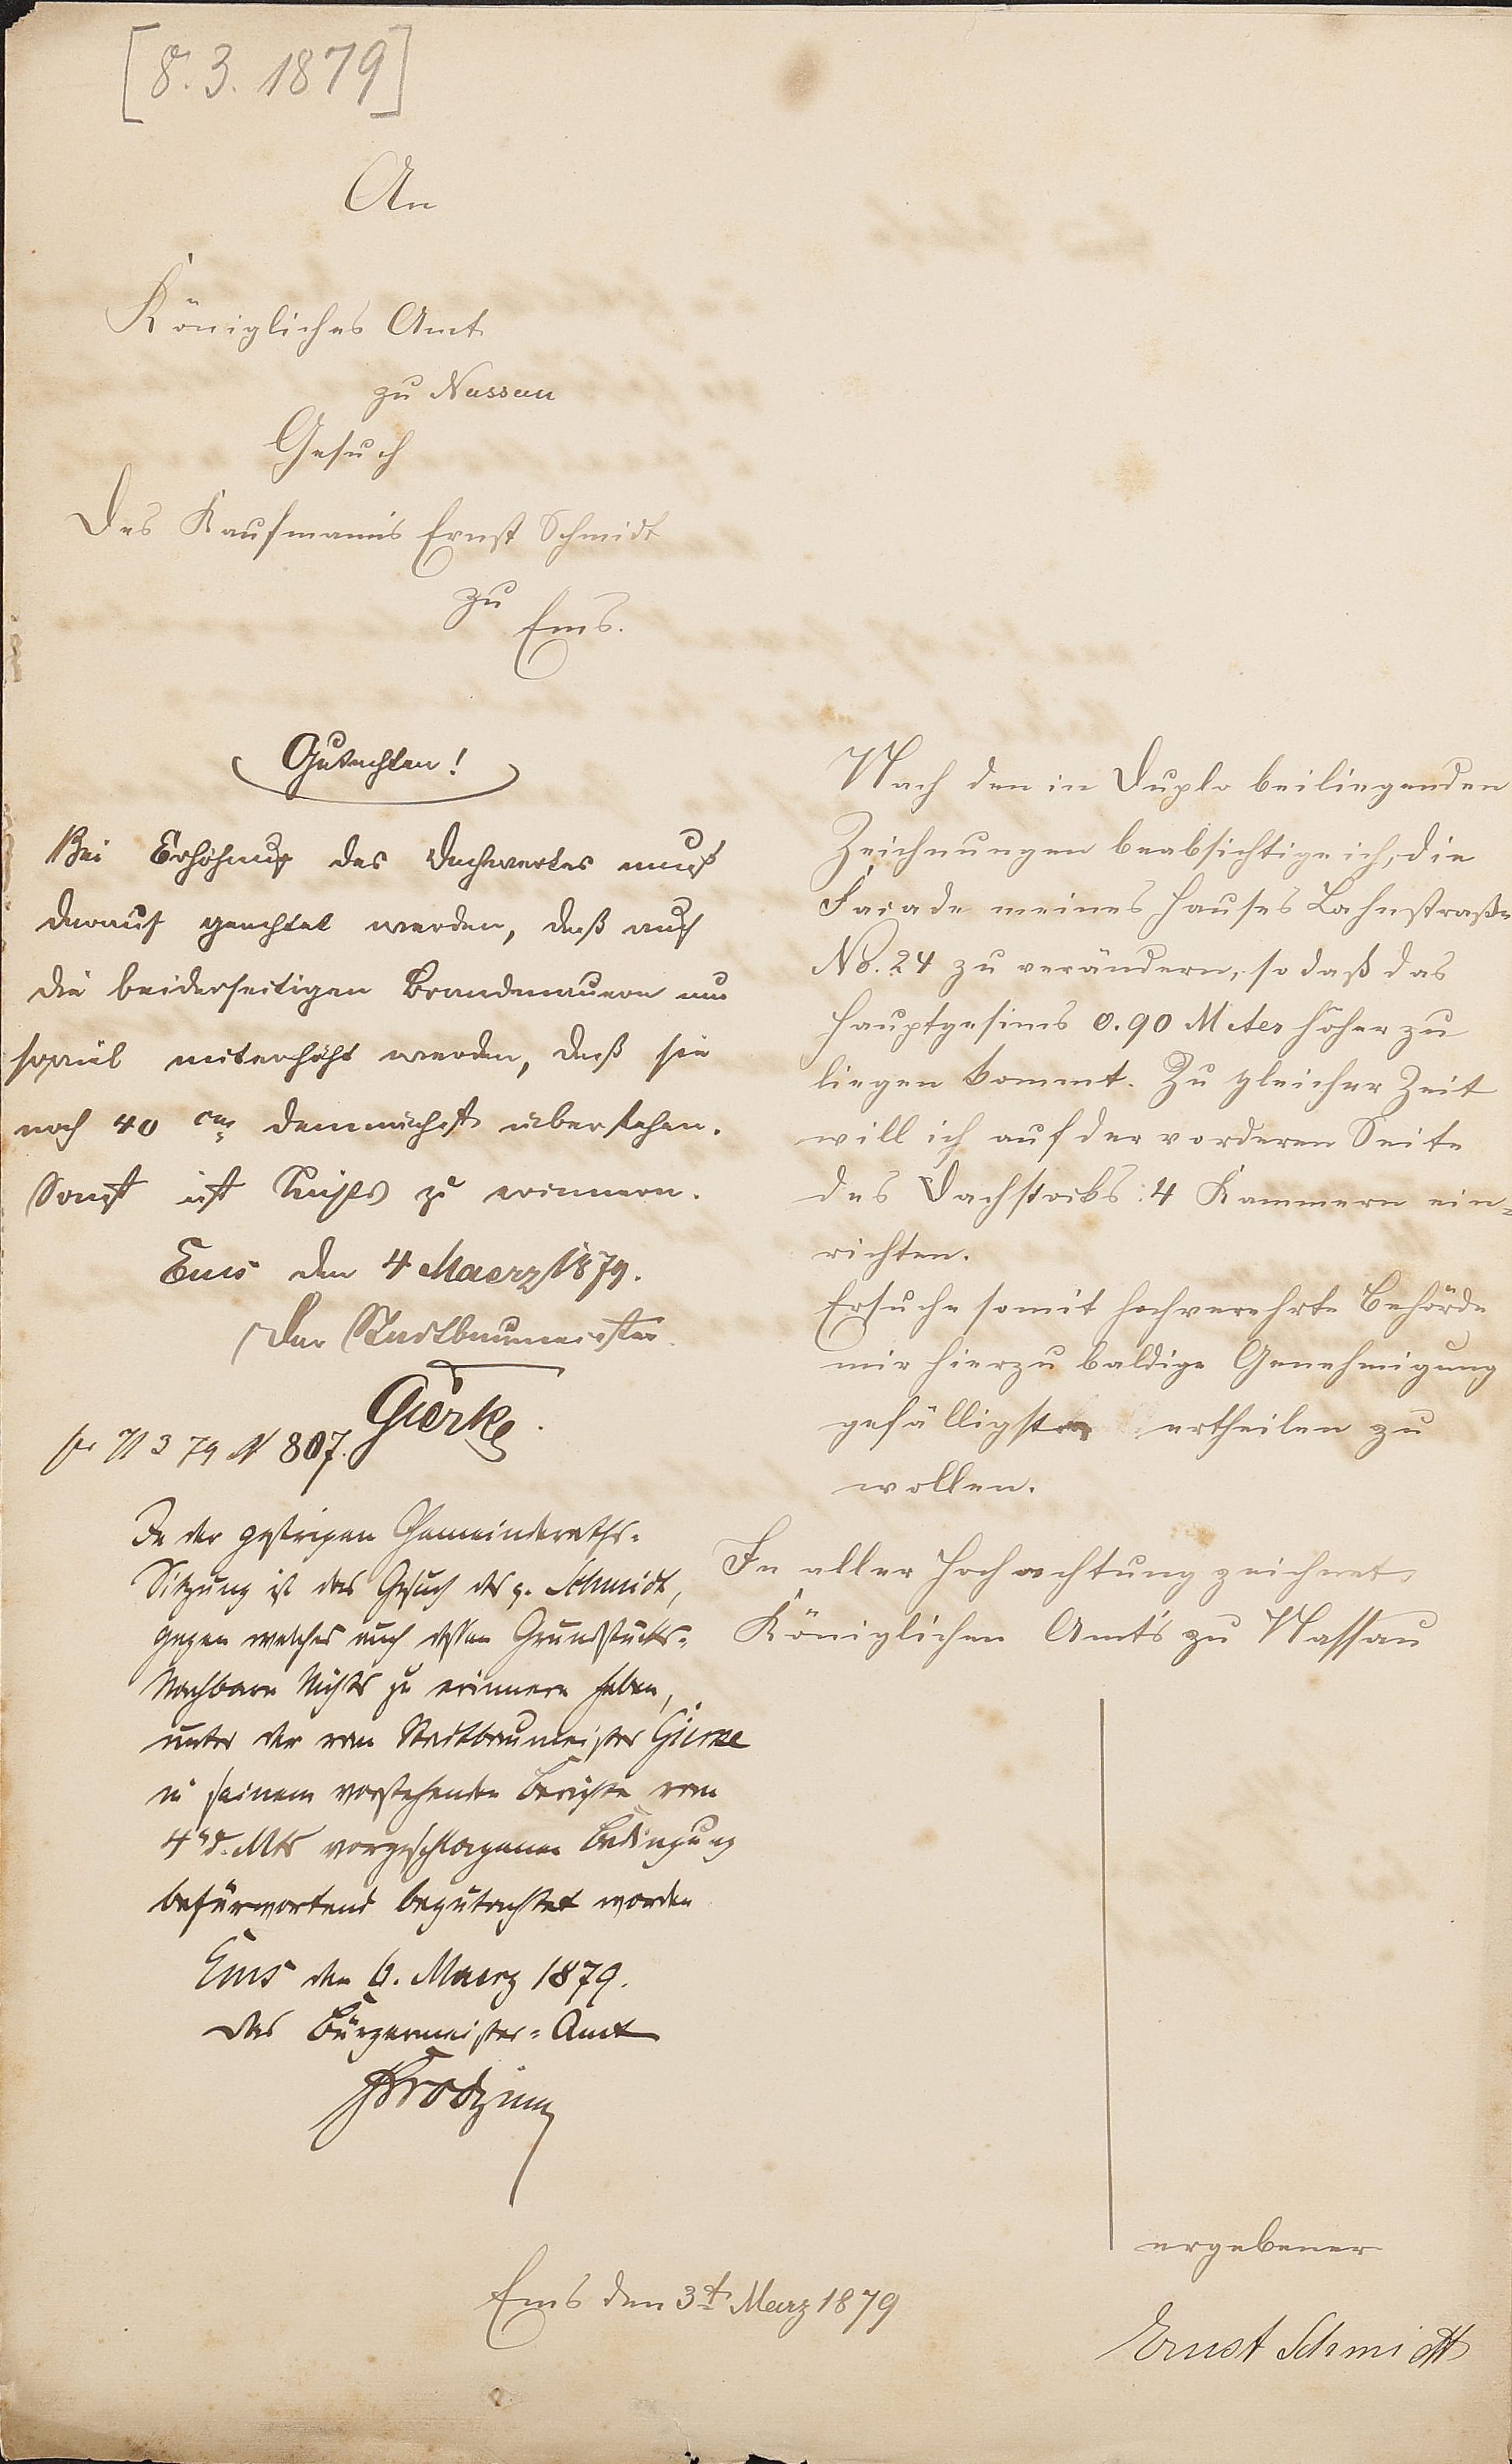 [8.3.1879]
An
Königliches Amt
zu Nassau
Gesuch
des Kaufmanns Ernst Schmidt
zu
Ems.
Gutachten!
Bei Erhöhung des Dachwerkes muß
darauf geachtet werden, daß auf
die beiderseitigen Brandmauern um
soviel miterhöht werden, daß sie
noch 40 cm demnächst überstehen.
Sonst ist Nichts zu erinnern.
Ems den 4 Maerz 1879.
Der Stadtbaumeister.
Gierke.
3 79 N 807.
In der gestrigen Gemeinderaths-
Sitzung ist das Gesuch des p. Schmidt,
gegen welches auch dessen Grundstücks-
Nachbarn Nichts zu erinnern haben,
unter der vom Stadtbaumeister Gierke
in seinem vorstehenden Berichte vom
4ten d. Mts vorgeschlagenen Bedingung
befürwortend begutachtet worden
Ems den 6. Maerz 1879.
Das Bürgermeister-Amt
Nach den in Duplo beiliegenden
Zeichnungen beabsichtige ich, die
Façade meines Hauses Lahnstraße
No. 24 zu verändern, so daß das
Hauptgesims 0.90 Meter höher zu
liegen kommt. Zu gleicher Zeit
will ich auf der vorderen Seite
des Dachstocks: 4 Kammern ein-
richten.
Ersuche somit hochverehrte Behörde
mir hierzu baldige Genehmigung
gefälligst ertheilen zu
wollen.
In aller Hochachtung zeichnet
Königlichen Amts zu Nassau
ergebener
Ems den 3t März 1879
Ernst Schmidt